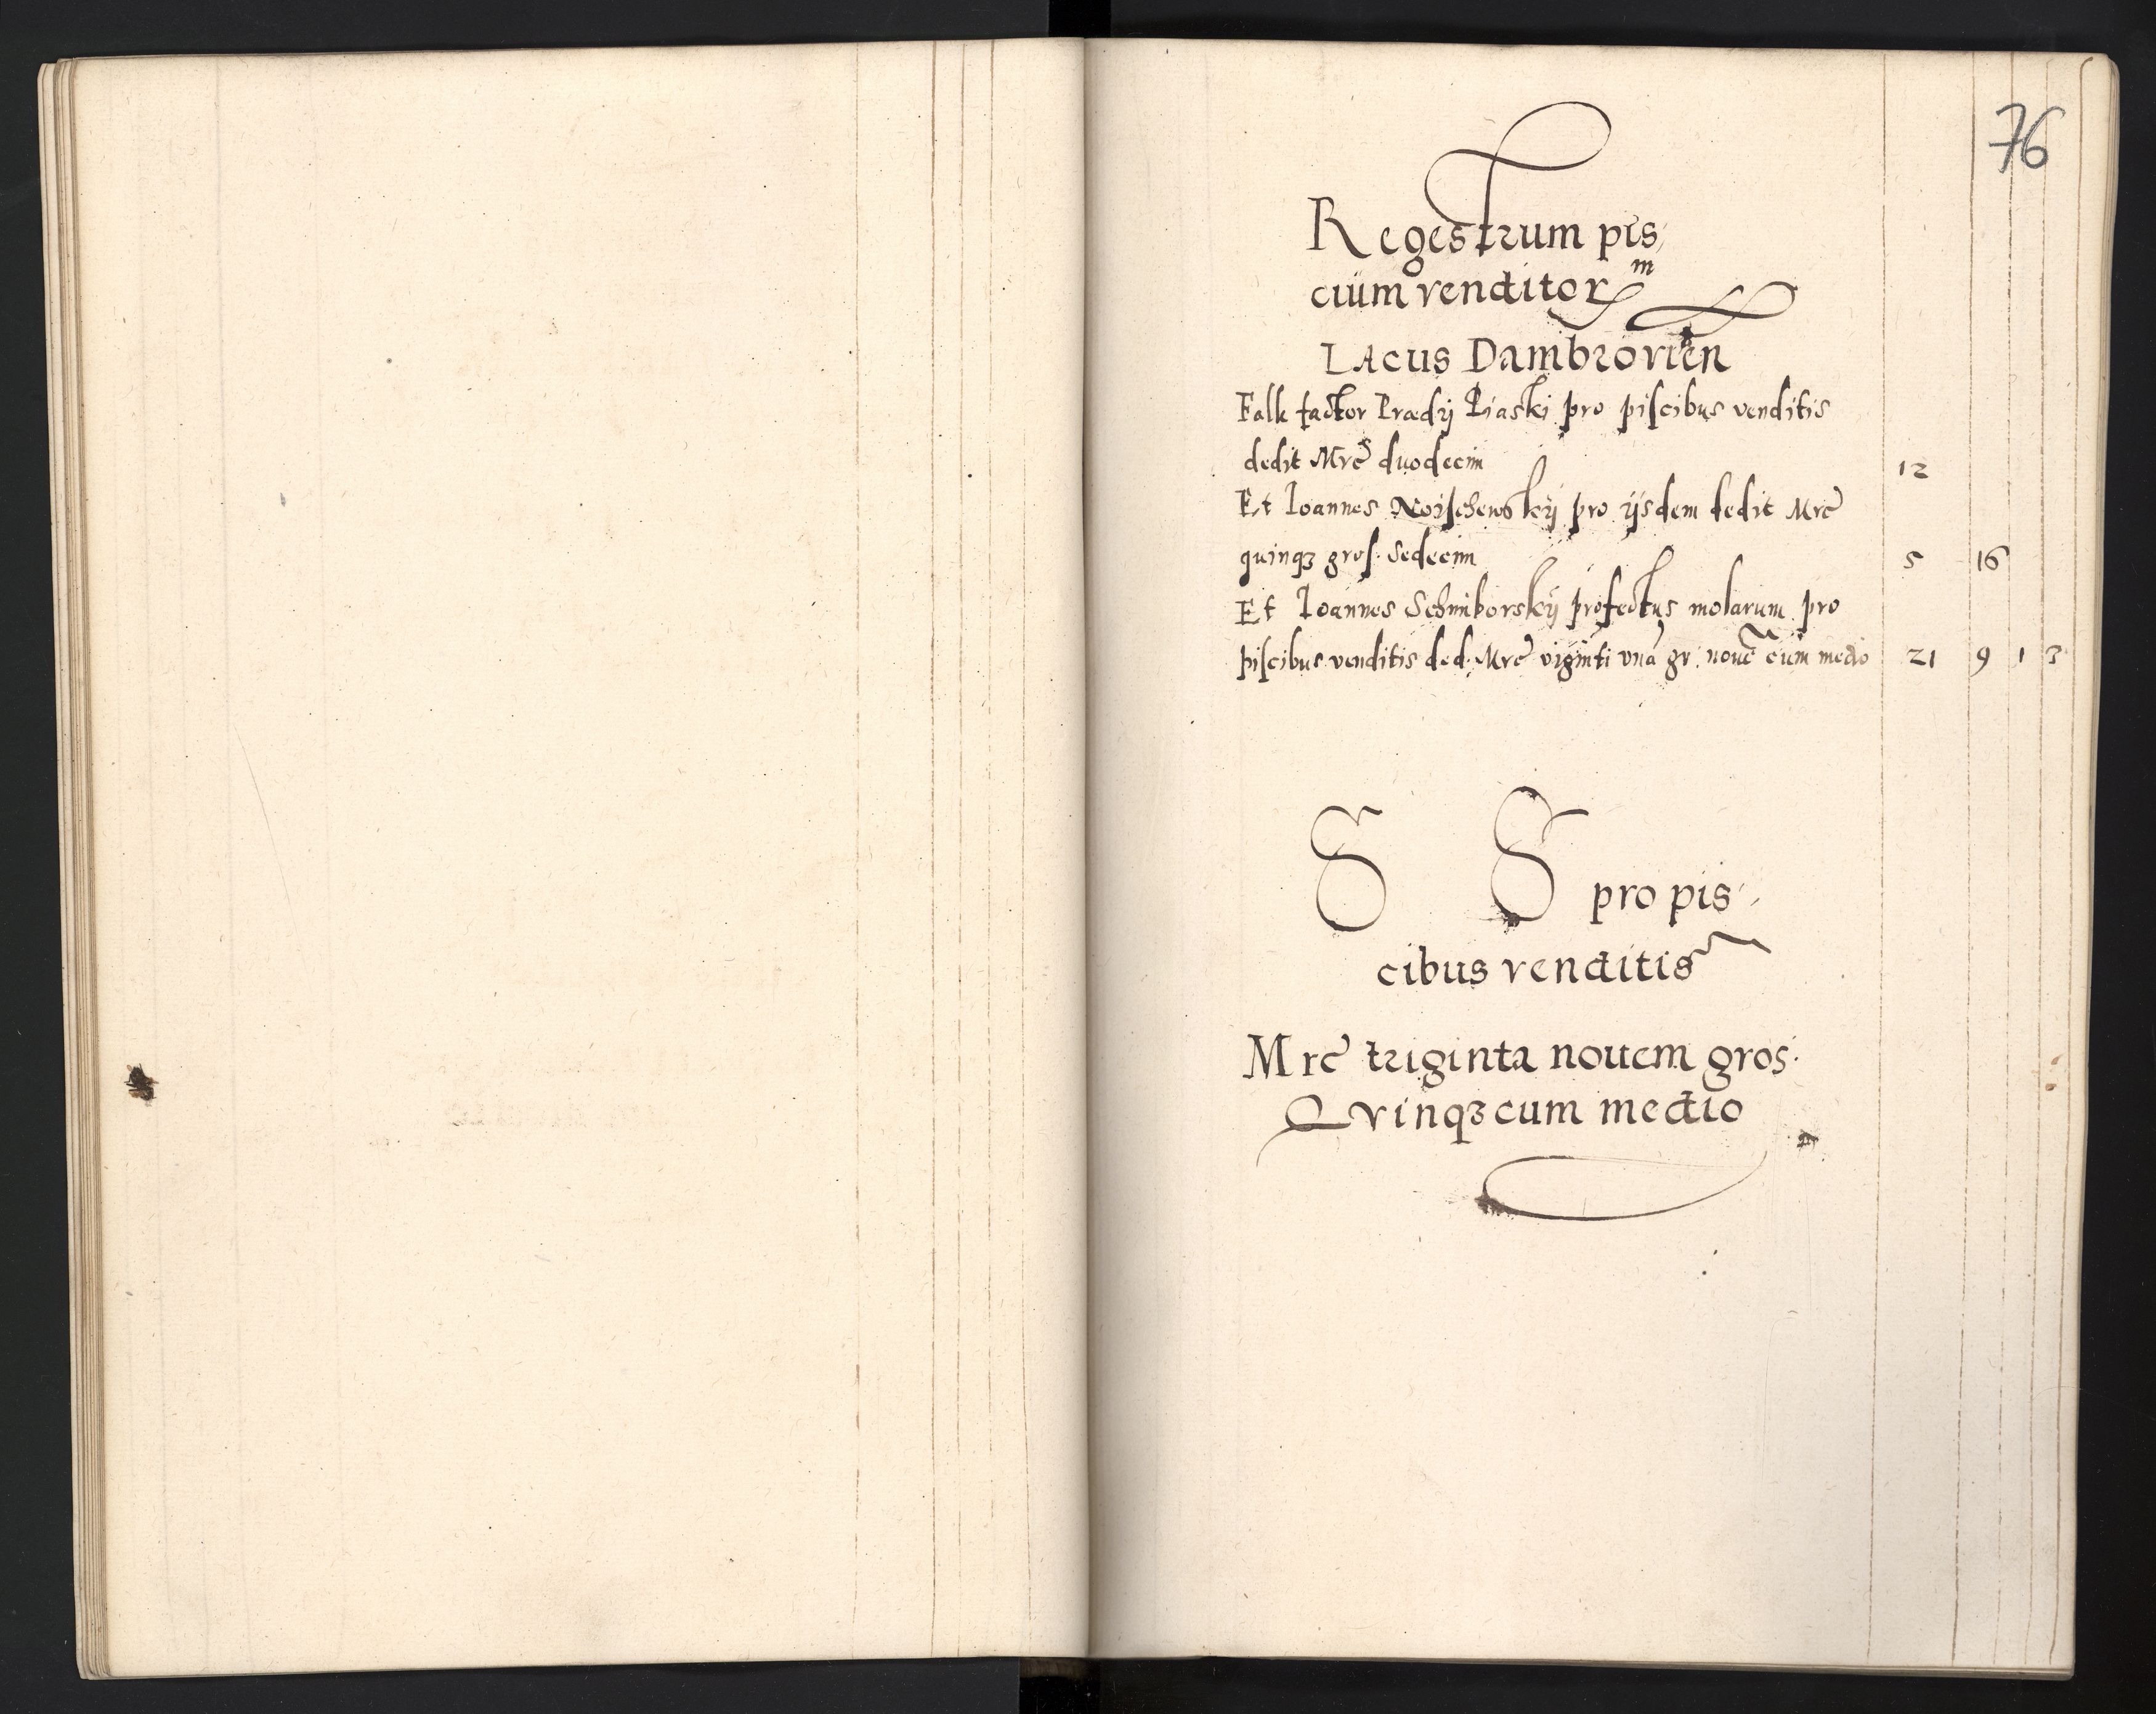 76
Regestrum pis,
cium venditorͫ
Lacus Dambrovien̄
Falk factor Prædij Piaski pro piscibus venditis
dedit Mrc̄ duodecim 12
Et Ioannes pro ijsdem dedit Mrc̄
quinqꝫ gros. Sedecim 5 16
Et Ioannes Schimborskij præfectus molarum pro
piscibus venditis ded. Mrc̄ viginti vnā gr. nouē cum medio 21 9 1 3
S S pro pis,
cibus venditis
Mrc̄ triginta nouem gros.
Qvinqꝫ cum medio